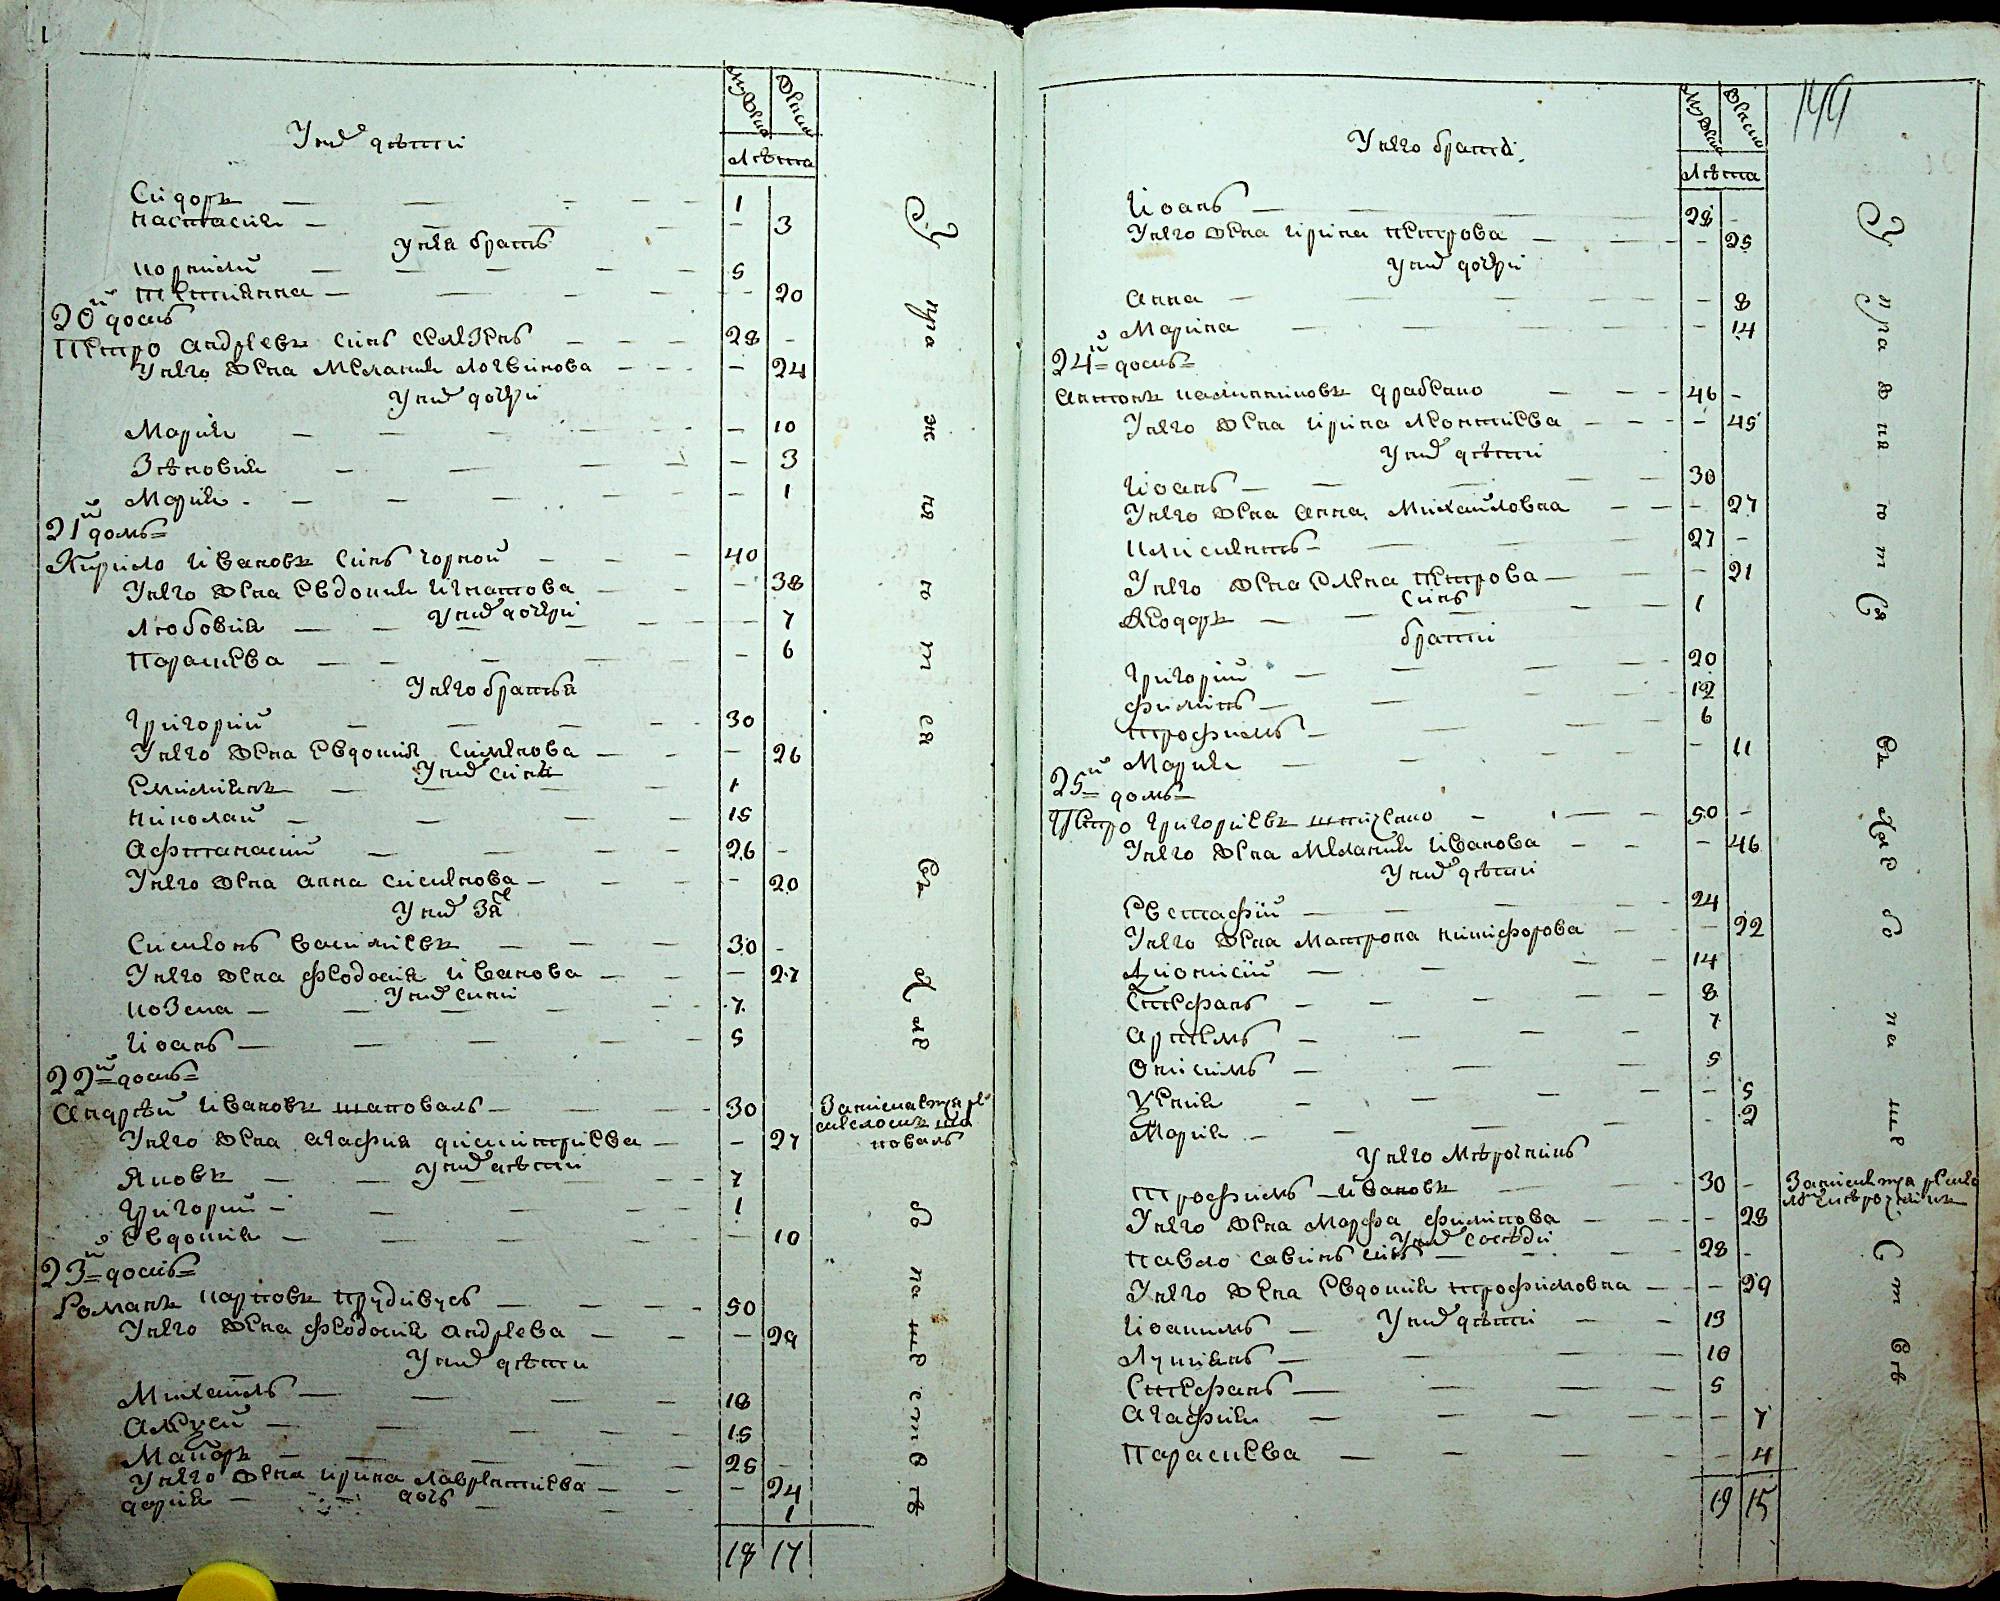 Мужска
Женска
Лѣта
У них дѣтти
Сидоръ — 1
настасия — 3
У нея братъ
корнилий — 5
теттиянна — 20
20й домъ
Петро андреевъ синъ
28
У него жена Мелания Логвинова — 24
У них дочери
Мария — 10
Зѣновия — 3
Мария — 1
21й домъ
Кирило Ивановъ синъ чорной — 40
У него жена Евдокия Игнатова — 38
У них дочери
Любовия — 7
Параскева — 6
У него братья
Григорий — 30
У него жена Евдокия Симеонова — 26
У них сини
Емилиянъ — 1
Николай — 15
Афтанасий — 26 -
У него жена анна — 20
У них зя
Симеонъ Василиевъ — 30 -
У него жена Феодосия Иванова — 27
У них сини
козема — 7
Иоанъ — 5
22й домъ
Андрѣй Ивановъ шаповалъ — 30
У него жена агафия димитриева — 27
У них дѣтти
Яковъ — 7
Григорий — 1
Евдокия — 10
23й домъ
Романъ карповъ прудивусъ — 50
У него жена Феодосия андреева — 29
У них дѣтти
Михаилъ — 18
Алексей — 15
Майоръ — 25 -
У него жена ирина лаврентиева — 24
дария — дочь — 1
18 17
У пражняются въ Хлебопашестве
144
Мужска
Женска
Лѣта
У него братя
Иоанъ — 28 -
У него жена ирина петрова — 25
У них дочери
анна — 8
Марина — 14
24й домъ
антонъ драбенко — 46 -
У него жена ирина Леонтиева — 45
У них дѣтти
Иоанъ — 30
У него жена анна Михайловна — 27
27 -
У него жена Елена петрова — 21
Синъ
Феодоръ — 1
братти
Григорий — 20
Филипъ — 12
трофимъ — 6
Мария — 11
25й домъ
Петро Григориевъ — 50 -
У него жена Мелания Иванова — 46
У них дѣтти
Евстафий — 24
У него жена Матрона никифорова — 22
Дионисий — 14
Стефанъ — 8
артемъ — 7
Онисимъ — 5
Уения — 5
Мария — 2
У него Мѣрочникъ
трофимъ Ивановъ — 30 -
У него жена Марфа филипова — 28
У них сосѣди
павло савинъ синъ — 28 -
У него жена Евдокия трофимовна — 29
У них дѣтти
Иоакимъ — 13
Лукиянъ — 10
Стефанъ — 5
агафия — 7
Параскева — 4
19 15
У пражняются въ Хлебопашестве